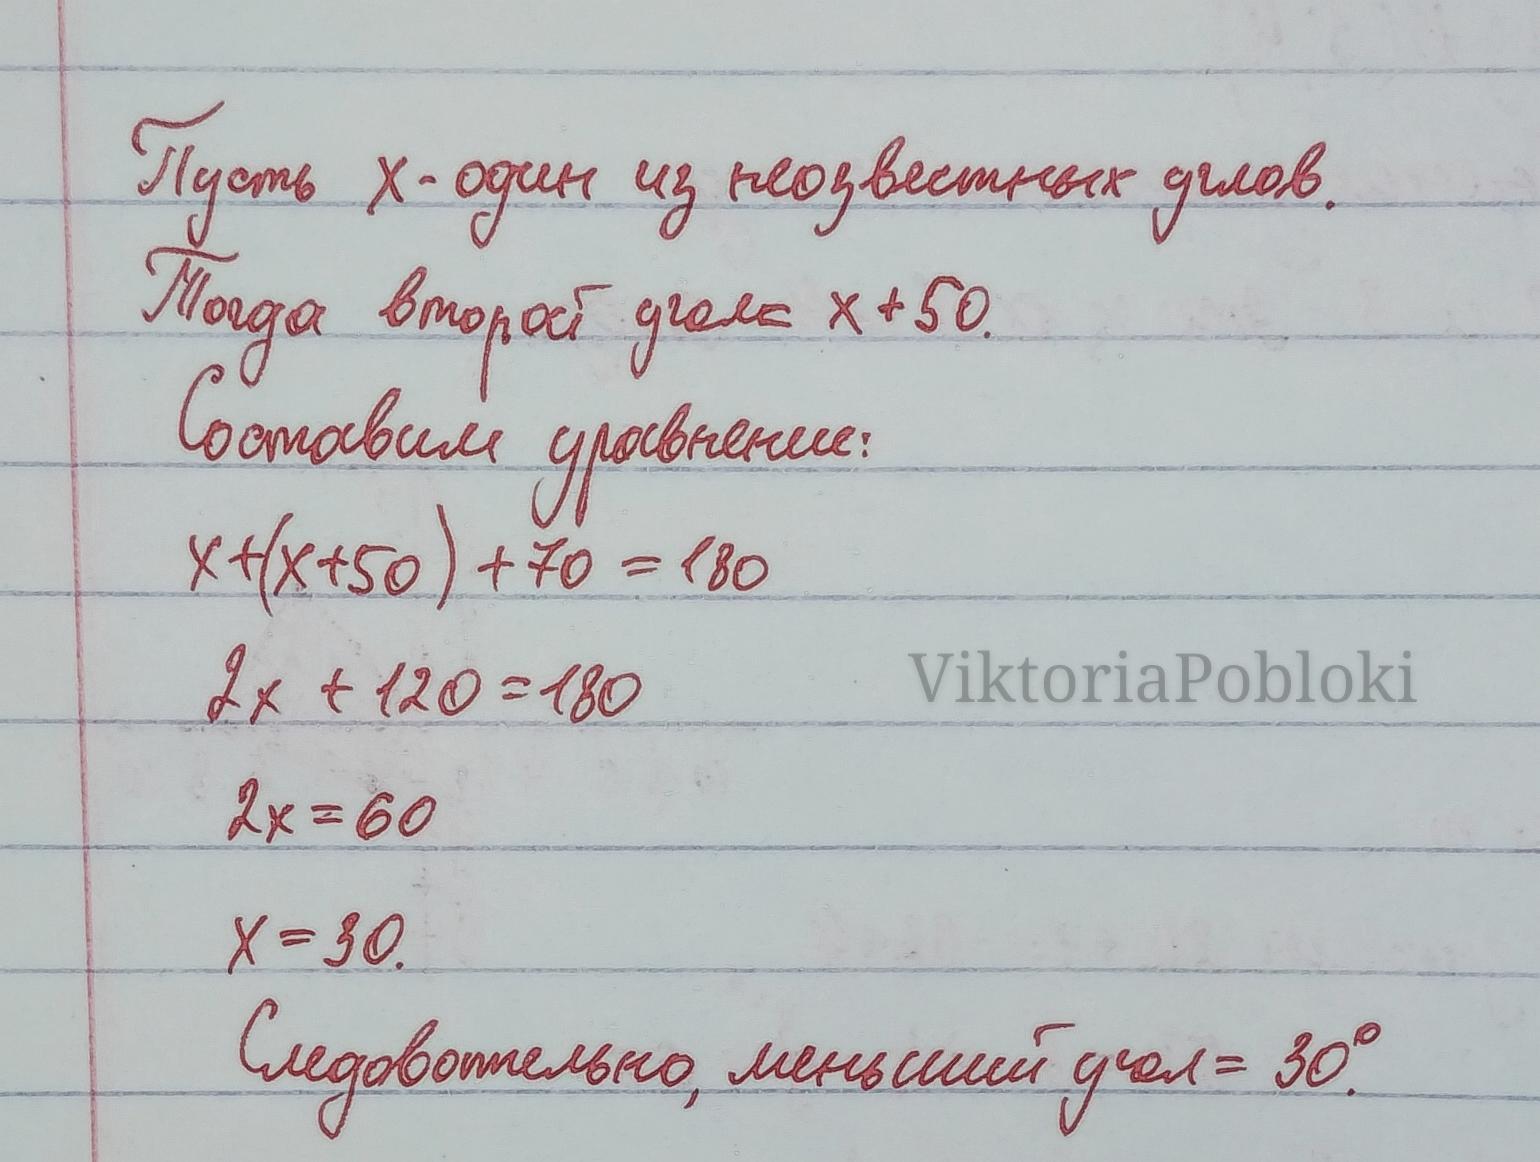 Пусть x - один из неозвестных углов.
Тогда второй угол = x + 50.
Составим уравнение:
x+(x+50) + 70 = 180
2x + 120 = 180
ViktoriaPobloki
2x = 60
x = 30.
Следовательно, меньший угол = 30°.